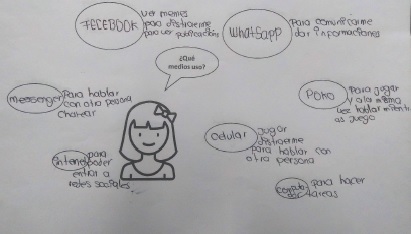 FACEBOOK
ver memes
para distraerme
para ver publicación
Whatsapp
Para comunicarme
dar informaciones
¿Qué
medios uso?
messenger
Para hablar
con otra persona
chatear
POKO
Para jugar
y a la misma
vez hablar mientr
as juego
celular
jugar
distraerme
para hablar con
otra persona
internet
para
entrar a
redes sociales
para hacer
tareas